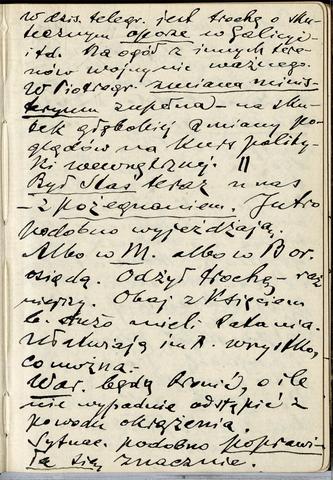 W dzis. telegr. jest trochę o sku-
tecznym oporze w Galicyi
itd. Na ogół z innych tere-
nów wojny nic ważnego.
W Piotrogr. zmiana minis-
teryum zupełna – na sku-
tek głębokiej zmiany po-
glądów na kurs polity-
ki wewnętrznej. ||
Był Staś teraz u nas
– z pożegnaniem. Jutro
podobno wyjeżdzają.
Albo w M. albo w Bor.
osiądą. Odżył trochę, raz
mięszy. Obaj z Księciem
b. dużo mieli latania.
Ułatwiają im R. wszystko,
co można.
War. będą bronić, o ile
nie wypadnie odstąpić z
powodu okrążenia.
Sytuac. podobno poprawi-
ła się znacznie.